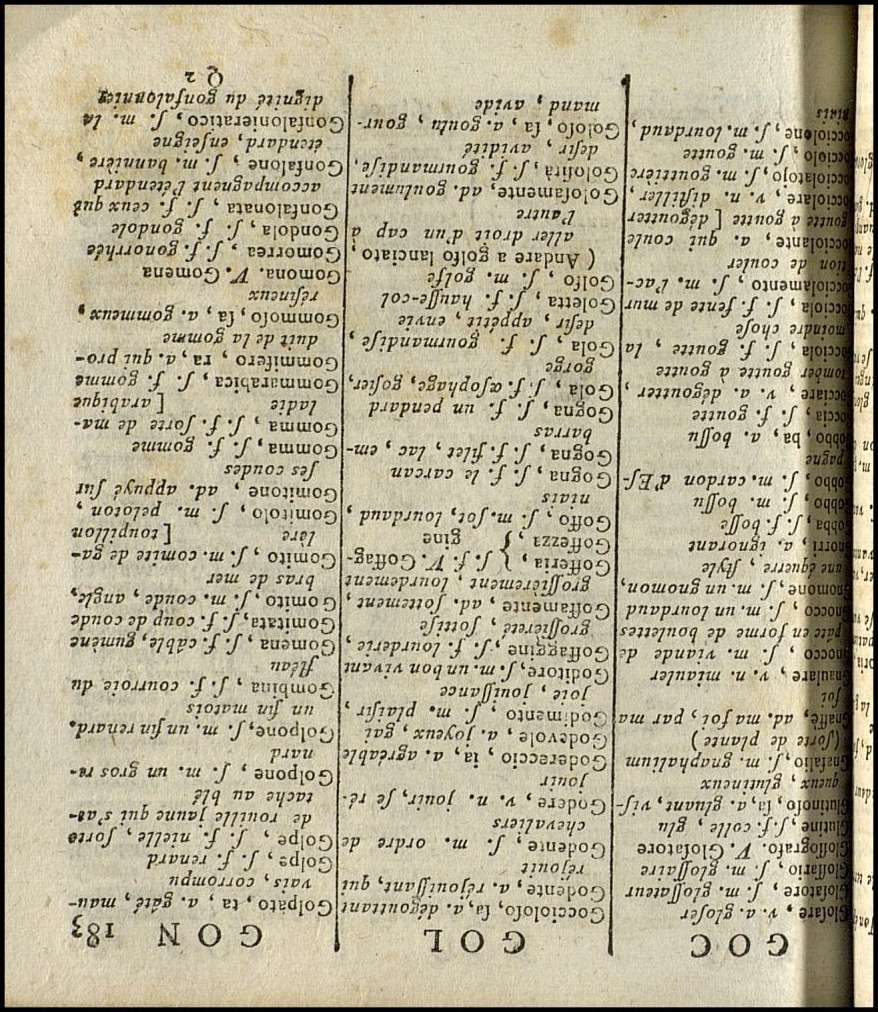 GOC
Gloſare, v. a. gloſer
Gloſatore, ſ. m. gloſſateur
Gloſſario, ſ. m. gloſſaire
Gloſſografo. V. Gloſatore
Glutine, ſ. f. colle, glu
Glutinoſo, ſa, a. gluant, viſ-
queux, glutineux
Gnafalio, ſ. m. gnaphalium
(ſorte de plante)
Gnaffè, ad. ma foi, par ma
foi
Gnaulare, v. n. miauler
Gnocco, ſ. m. viande de
pâte en forme de boulettes
Gnocco, ſ. m. un lourdaud
Gnomone, ſ. m. un gnomon,
une équerre, ſtyle
Gnorri, a. ignorant
Gobba, ſ. f. boſſe
Gobbo, ſ. m. boſſu
Gobbo, ſ. m. cardon d'Eſ-
pagne
Gobbo, ba, a. boſſu
Goccia, ſ. f. goutte
Gocciare, v. a. dégoutter,
tomber goutte à goutte
Gocciola, ſ. f. goutte, la
moindre choſe
Gocciola, ſ. f. fente de mur
Gocciolamento, ſ. m. l'ac-
tion de couler
Gocciolante, a. qui coule
goutte à goutte [dégoutter
Gocciolare, v. n. diſtiller,
Gocciolatojo, ſ. m. gouttière
Gocciolo, ſ. m. goutte
Gocciolone, ſ. m. lourdaud,
niais
GOL
Goccioloſo, ſa, a. dégouttant
Godente, a. réjouiſſant, qui
réjouit
Godente, ſ. m. ordre de
chevaliers
Godere, v. n. jouir, ſe ré-
jouir
Godereccio, ia, a. agréable
Godevole, a. joyeux, gai
Godimento, ſ. m. plaiſir,
joie, jouiſſance
Goditore, ſ. m. un bon vivant
Goffaggine, ſ. f. lourderie,
groſſiéreté, ſottiſe
Goffamente, ad. ſottement,
groſſiérement, lourdement
Gofferia, } ſ. f. V. Goffag-
Goffezza, } gine
Goffo, ſ. m. ſot, lourdaud,
niais
Gogna, ſ. f. le carcan
Gogna, ſ. f. filet, lac, em-
barras
Gogna, ſ. f. un pendard
Gola, ſ. f. œſophage, goſier,
gorge
Gola, ſ. f. gourmandiſe,
deſir, appétit, envie
Goletta, ſ. f. hauſſe-col
Golfo, ſ. m. golfe
( Andare a golfo lanciato,
aller droit d'un cap à
l'autre
Goloſamente, ad. goulument
Goloſità, ſ. f. gourmandiſe,
deſir, avidité
Goloſo, ſa, a. goulu, gour-
mand, avide
GON 183
Golpato, ta, a. gâté, mau-
vais, corrompu
Golpe, ſ. f. renard
Golpe, ſ. f. nielle, ſorte
de rouille jaune qui s'at-
tache au blé
Golpone, ſ. m. un gros re-
nard
Golpone, ſ. m. un fin renard,
un fin matois
Gombina, ſ. f. courroie du
fléau
Gomena, ſ. f. cable, gumène
Gomitata, ſ. f. coup de coude
Gomito, ſ. m. coude, angle,
bras de mer
Gomito, ſ. m. comite de ga-
lère [toupillon
Gomitolo, ſ. m. peloton,
Gomitone, ad. appuyé ſur
ſes coudes
Gomma, ſ. f. gomme
Gomma, ſ. f. ſorte de ma-
ladie [arabique
Gommarabica, ſ. f. gomme
Gommifero, ra, a. qui pro-
duit de la gomme
Gommoſo, ſa, a. gommeux,
réſineux
Gomona. V. Gomena
Gomorrea, ſ. f. gonorrhée
Gondola, ſ. f. gondole
Gonfalonata, ſ. f. ceux qui
accompagnent l'étendard
Gonfalone, ſ. m. bannière,
étendard, enſeigne
Gonfalonieratico, ſ. m. la
dignité du gonfalonnier
Q 2